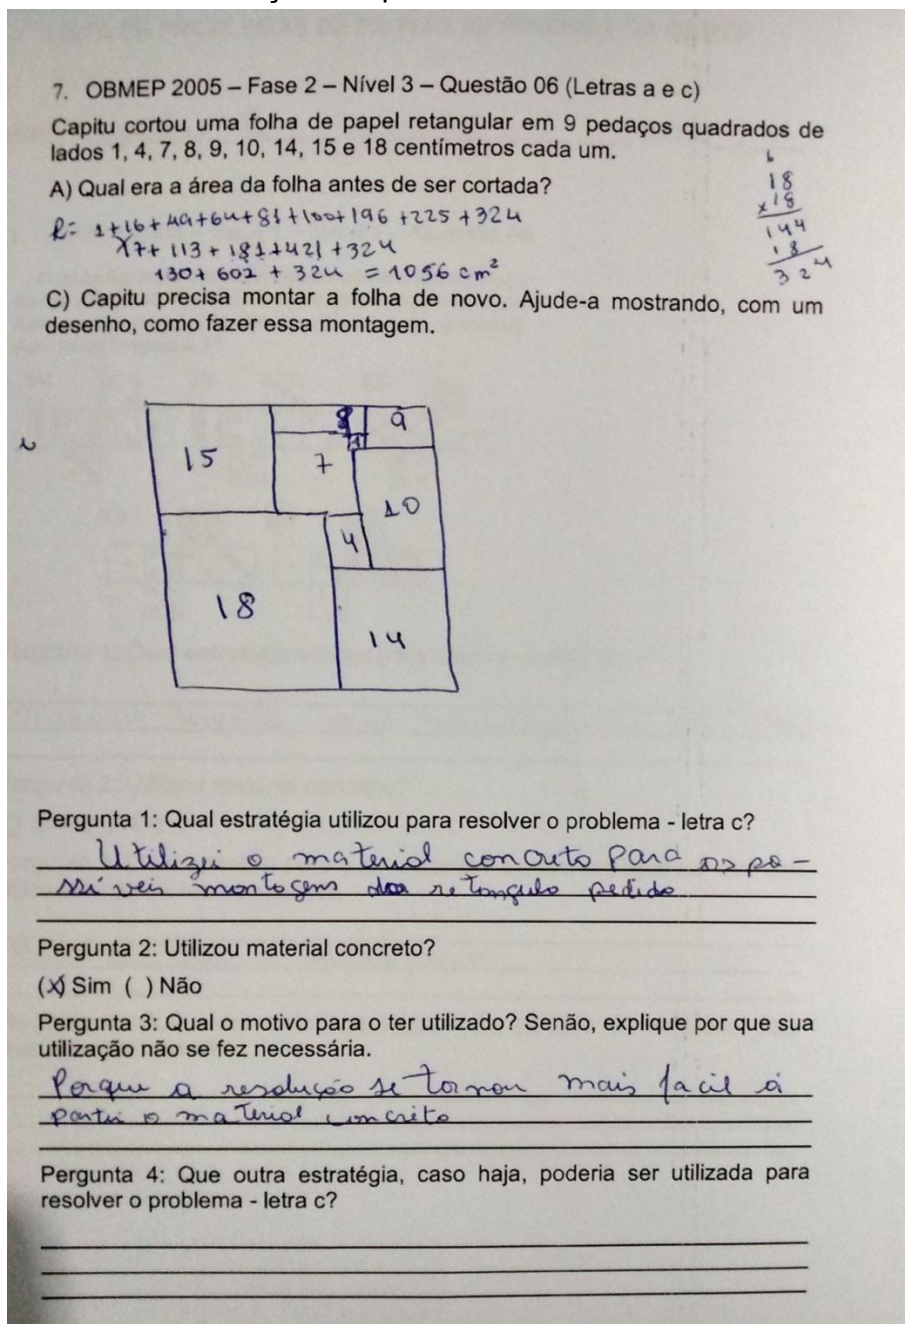 7. OBMEP 2005 – Fase 2 – Nível 3 – Questão 06 (Letras a e c)
Capitu cortou uma folha de papel retangular em 9 pedaços quadrados de
lados 1, 4, 7, 8, 9, 10, 14, 15 e 18 centímetros cada um.
A) Qual era a área da folha antes de ser cortada?
R: 1+16+49+64+81+100+196+225+324
17+113+181+421+324
130+602+324 = 1056 cm²
6
18
x18
144
18
324
C) Capitu precisa montar a folha de novo. Ajude-a mostrando, com um
desenho, como fazer essa montagem.
15
8
9
1
7
10
4
18
14
Pergunta 1: Qual estratégia utilizou para resolver o problema - letra c?
Utilizei o material concreto para as po-
ssíveis montagens do retangulo pedido
Pergunta 2: Utilizou material concreto?
(x) Sim ( ) Não
Pergunta 3: Qual o motivo para o ter utilizado? Senão, explique por que sua
utilização não se fez necessária.
Porque a resolução se tornou mais facil á
partir o material concreto
Pergunta 4: Que outra estratégia, caso haja, poderia ser utilizada para
resolver o problema - letra c?